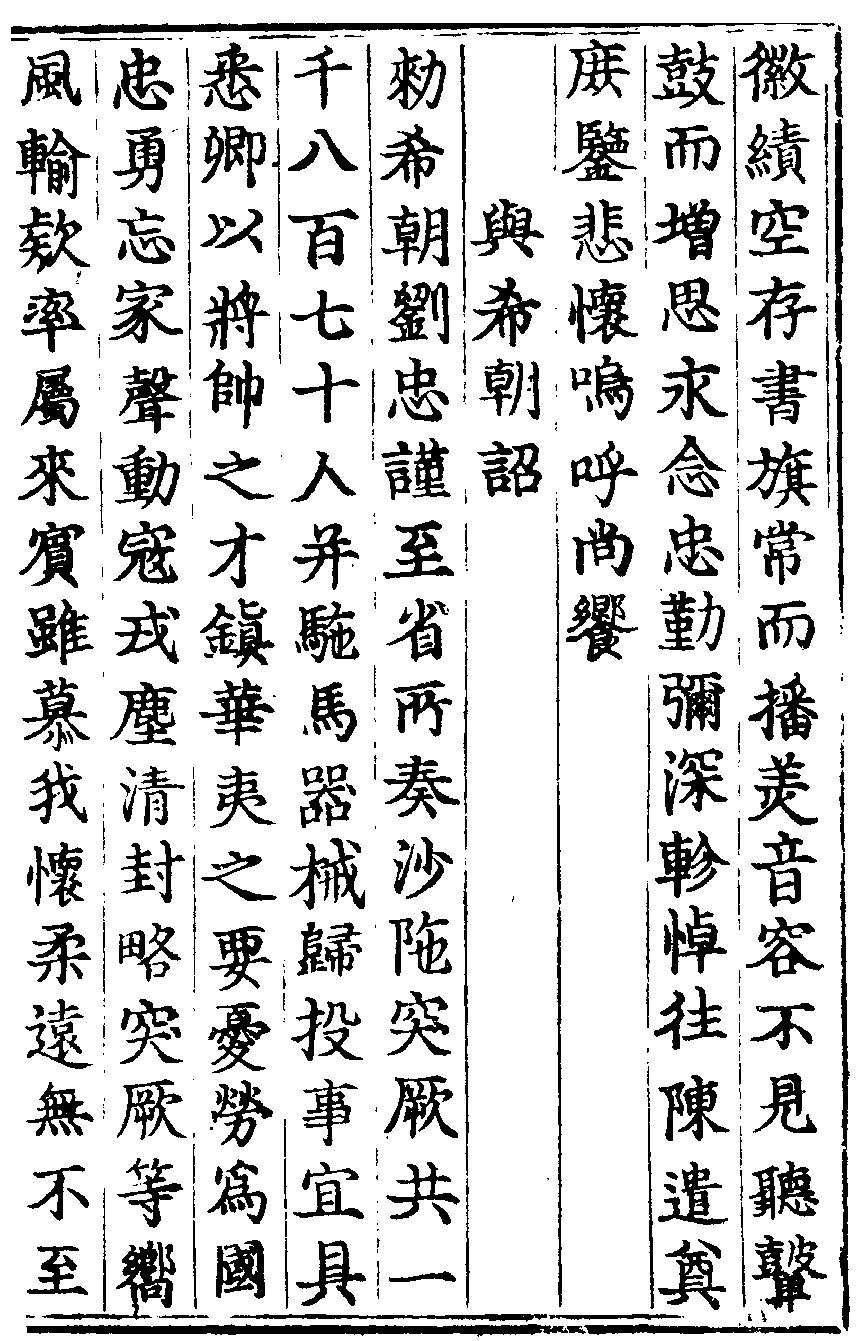 徽績空存書旗常而播羙音容不見聽鼙
鼓而增思永念忠勤彌深軫悼往陳遣奠
庶鑒悲懷嗚呼尚饗
與希朝詔
勑希朝劉忠謹至省所奏沙陁突厥共一
千八百七十人并駞馬器械歸投事宜具
悉卿以將帥之才鎮華夷之要憂勞爲國
忠勇忘家聲動寇戎塵清封略突厥等嚮
風輸欵率屬來賓雖慕我懷柔遠無不至